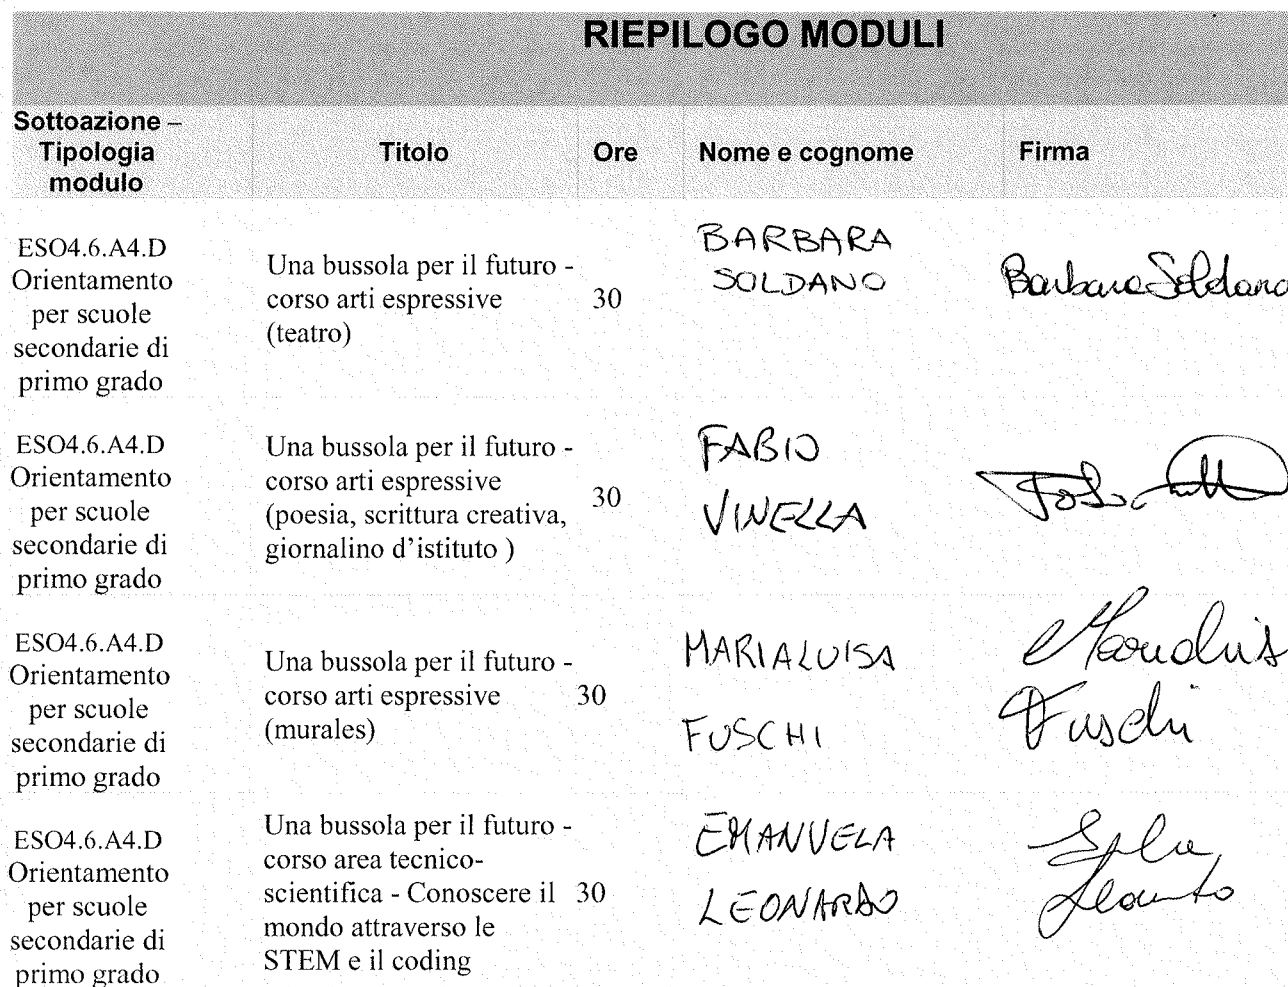 RIEPILOGO MODULI
Sottoazione –
Tipologia
modulo
Titolo
Ore
Nome e cognome
Firma
ESO4.6.A4.D
Orientamento
per scuole
secondarie di
primo grado
Una bussola per il futuro -
corso arti espressive
(teatro)
30
BARBARA
SOLDANO
Barbara Soldano
ESO4.6.A4.D
Orientamento
per scuole
secondarie di
primo grado
Una bussola per il futuro -
corso arti espressive
(poesia, scrittura creativa,
giornalino d’istituto )
30
FABIO
VINELLA
ESO4.6.A4.D
Orientamento
per scuole
secondarie di
primo grado
Una bussola per il futuro -
corso arti espressive
(murales)
30
MARIALUISA
FUSCHI
Fuschi
ESO4.6.A4.D
Orientamento
per scuole
secondarie di
primo grado
Una bussola per il futuro -
corso area tecnico-
scientifica - Conoscere il
mondo attraverso le
STEM e il coding
30
EMANUELA
LEONARDO